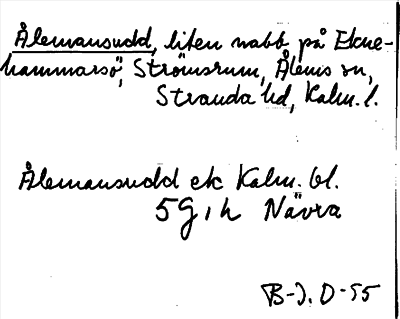 Ålemansudd, liten nabb på Ekne-
hammarsö, Strömsrum, Ålems sn,
Stranda hd, Kalm. l.
Ålemansudd ek Kalm. bl.
5G1h Nävra
B-J. O-55